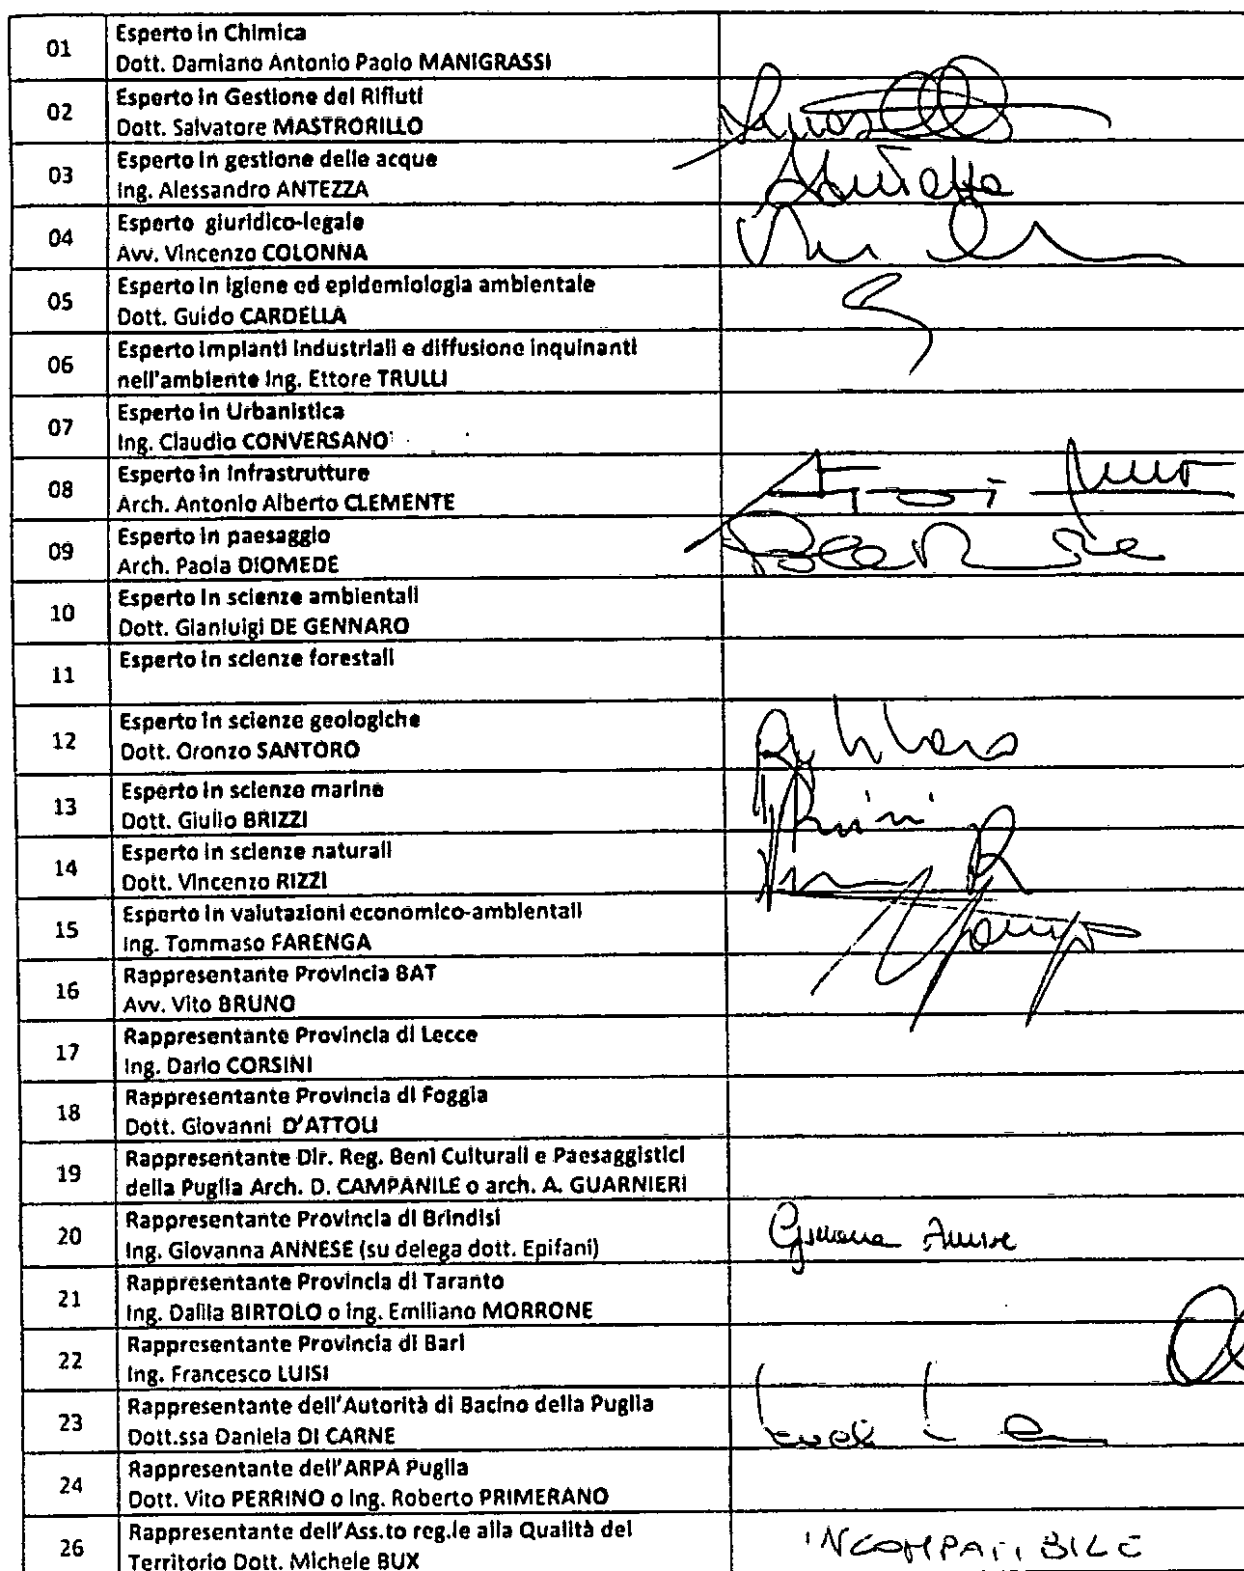 01
Esperto in Chimica
Dott. Damiano Antonio Paolo MANIGRASSI
02
Esperto in Gestione dei Rifiuti
Dott. Salvatore MASTRORILLO
03
Esperto in gestione delle acque
Ing. Alessandro ANTEZZA
04
Esperto giuridico-legale
Avv. Vincenzo COLONNA
05
Esperto in igiene ed epidemiologia ambientale
Dott. Guido CARDELLA
06
Esperto impianti industriali e diffusione inquinanti
nell'ambiente Ing. Ettore TRULLI
07
Esperto in Urbanistica
Ing. Claudio CONVERSANO
08
Esperto in Infrastrutture
Arch. Antonio Alberto CLEMENTE
09
Esperto in paesaggio
Arch. Paola DIOMEDE
10
Esperto in scienze ambientali
Dott. Gianluigi DE GENNARO
11
Esperto in scienze forestali
12
Esperto in scienze geologiche
Dott. Oronzo SANTORO
13
Esperto in scienze marine
Dott. Giulio BRIZZI
14
Esperto in scienze naturali
Dott. Vincenzo RIZZI
15
Esperto in valutazioni economico-ambientali
Ing. Tommaso FARENGA
16
Rappresentante Provincia BAT
Avv. Vito BRUNO
17
Rappresentante Provincia di Lecce
Ing. Dario CORSINI
18
Rappresentante Provincia di Foggia
Dott. Giovanni D'ATTOLI
19
Rappresentante Dir. Reg. Beni Culturali e Paesaggistici
della Puglia Arch. D. CAMPANILE o arch. A. GUARNIERI
20
Rappresentante Provincia di Brindisi
Ing. Giovanna ANNESE (su delega dott. Epifani)
21
Rappresentante Provincia di Taranto
Ing. Dalila BIRTOLO o Ing. Emiliano MORRONE
22
Rappresentante Provincia di Bari
Ing. Francesco LUISI
23
Rappresentante dell'Autorità di Bacino della Puglia
Dott.ssa Daniela DI CARNE
24
Rappresentante dell'ARPA Puglia
Dott. Vito PERRINO o Ing. Roberto PRIMERANO
26
Rappresentante dell'Ass.to reg.le alla Qualità del
Territorio Dott. Michele BUX
INCOMPATIBILE